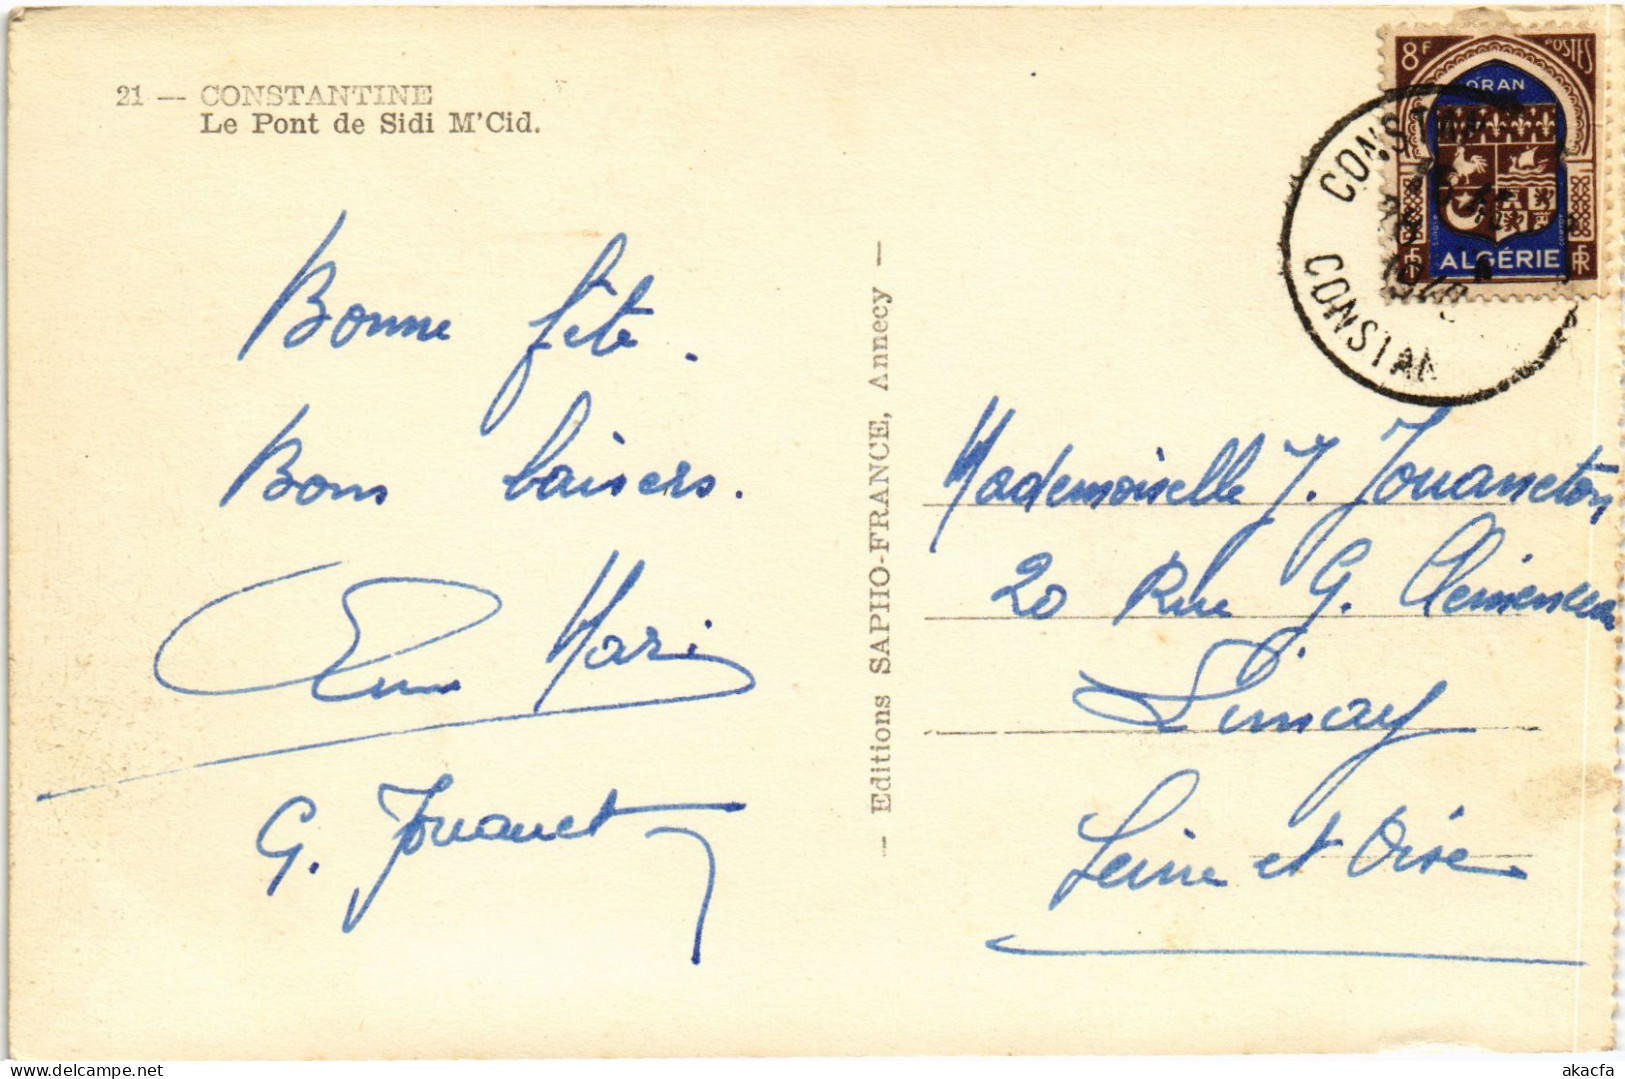 21 — CONSTANTINE
Le Pont de Sidi M'Cid.
Bonne fête.
Bons baisers.
Mari
G. Jouanet
— Editions SAPHO-FRANCE, Annecy —
8F POSTES
ORAN
ALGÉRIE
RF
CONSTAN
CONSTAN
Mademoiselle J. Jouanneton
20 Rue G. Clémenceau
Limay
Seine et Oise
akacfa